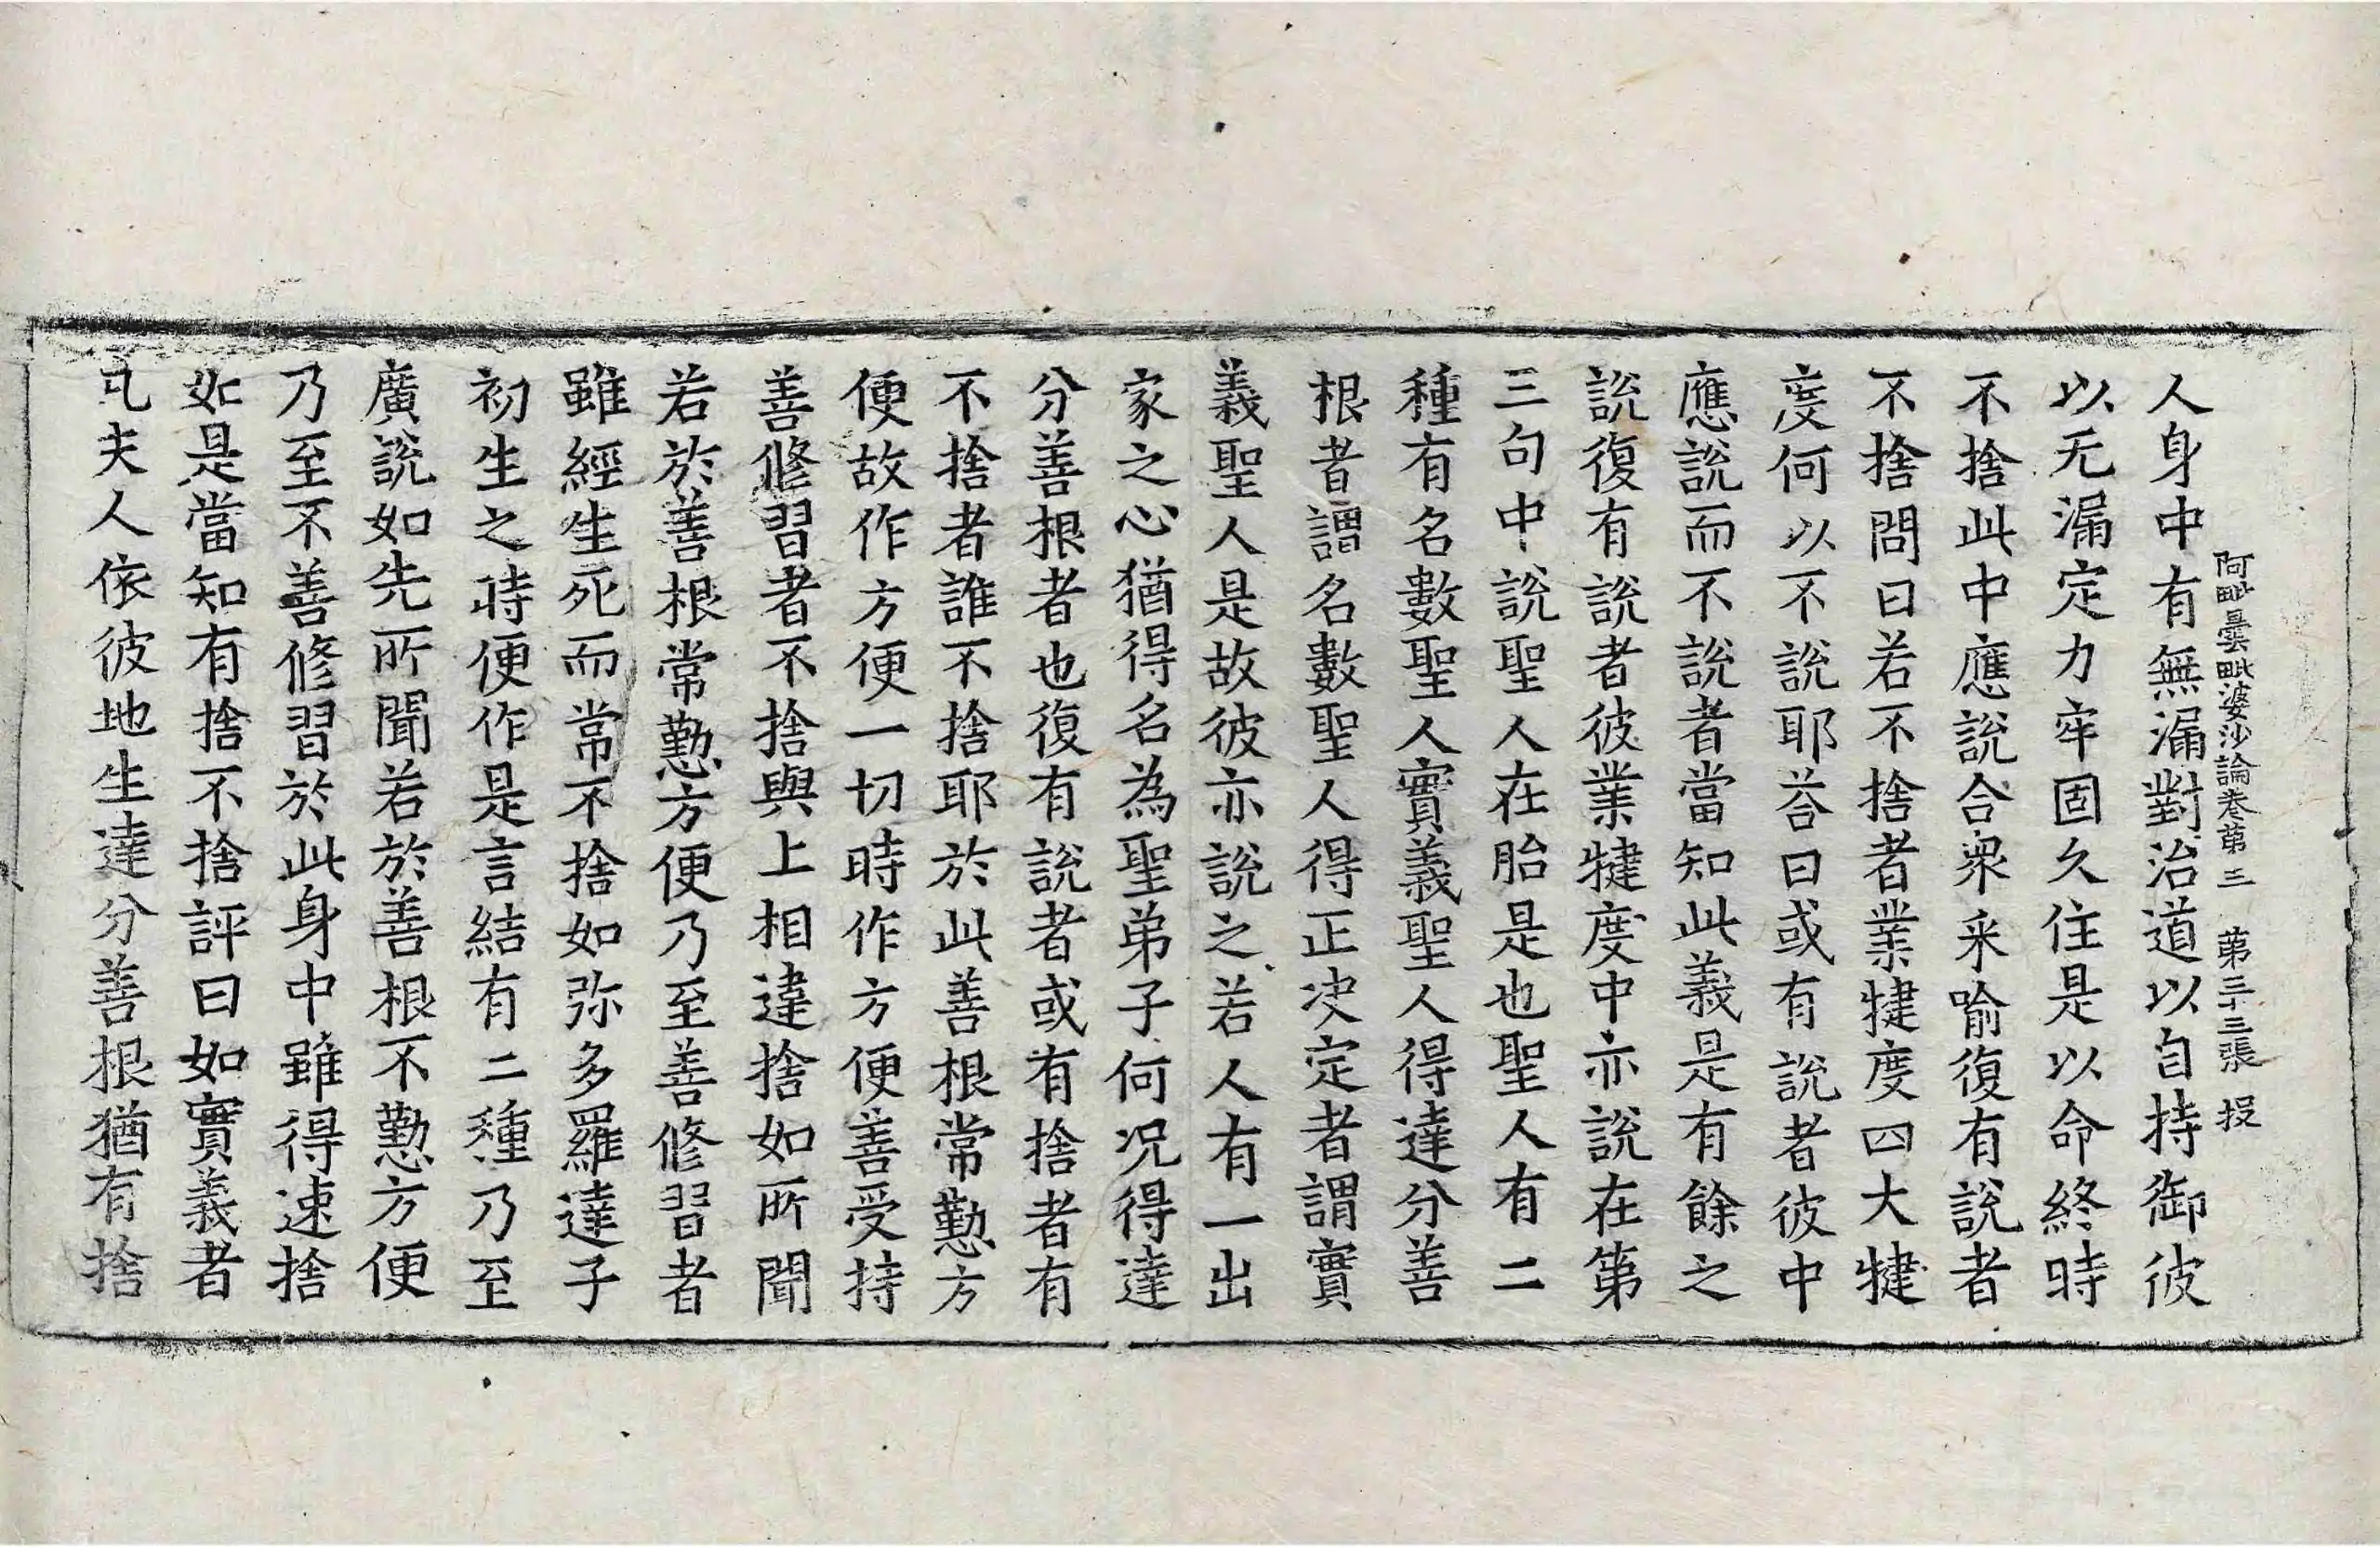 阿毗曇毗婆沙論卷第三　第三十三張　投
人身中有無漏對治道以自持御彼
以无漏定力牢固久住是以命終時
不捨此中應說合衆采喻復有說者
不捨問曰若不捨者業犍度四大犍
度何以不說耶荅曰或有說者彼中
應說而不說者當知此義是有餘之
說復有說者彼業犍度中亦說在第
三句中說聖人在胎是也聖人有二
種有名數聖人實義聖人得達分善
根者謂名數聖人得正决定者謂實
義聖人是故彼亦說之若人有一出
家之心猶得名為聖弟子何况得達
分善根者也復有說者或有捨者有
不捨者誰不捨耶於此善根常懃方
便故作方便一切時作方便善受持
善修習者不捨與上相違捨如所聞
若於善根常懃方便乃至善修習者
雖經生死而常不捨如弥多羅達子
初生之時便作是言結有二種乃至
廣說如先所聞若於善根不懃方便
乃至不善修習於此身中雖得速捨
如是當知有捨不捨評曰如實義者
凡夫人依彼地生達分善根猶有捨